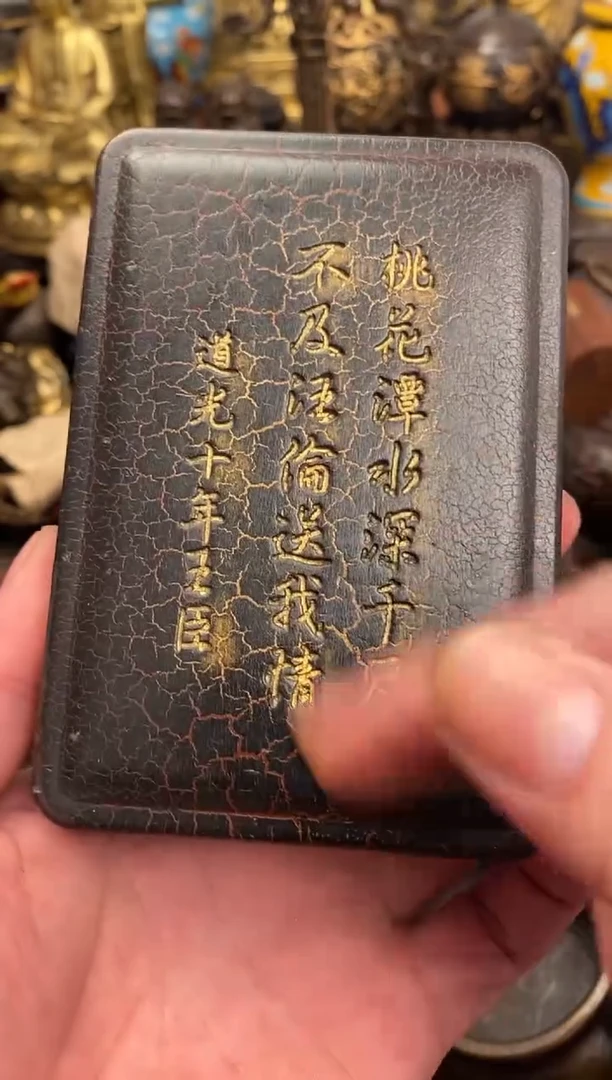 桃花潭水深千
不及汪倫送我情
道光十年王臣